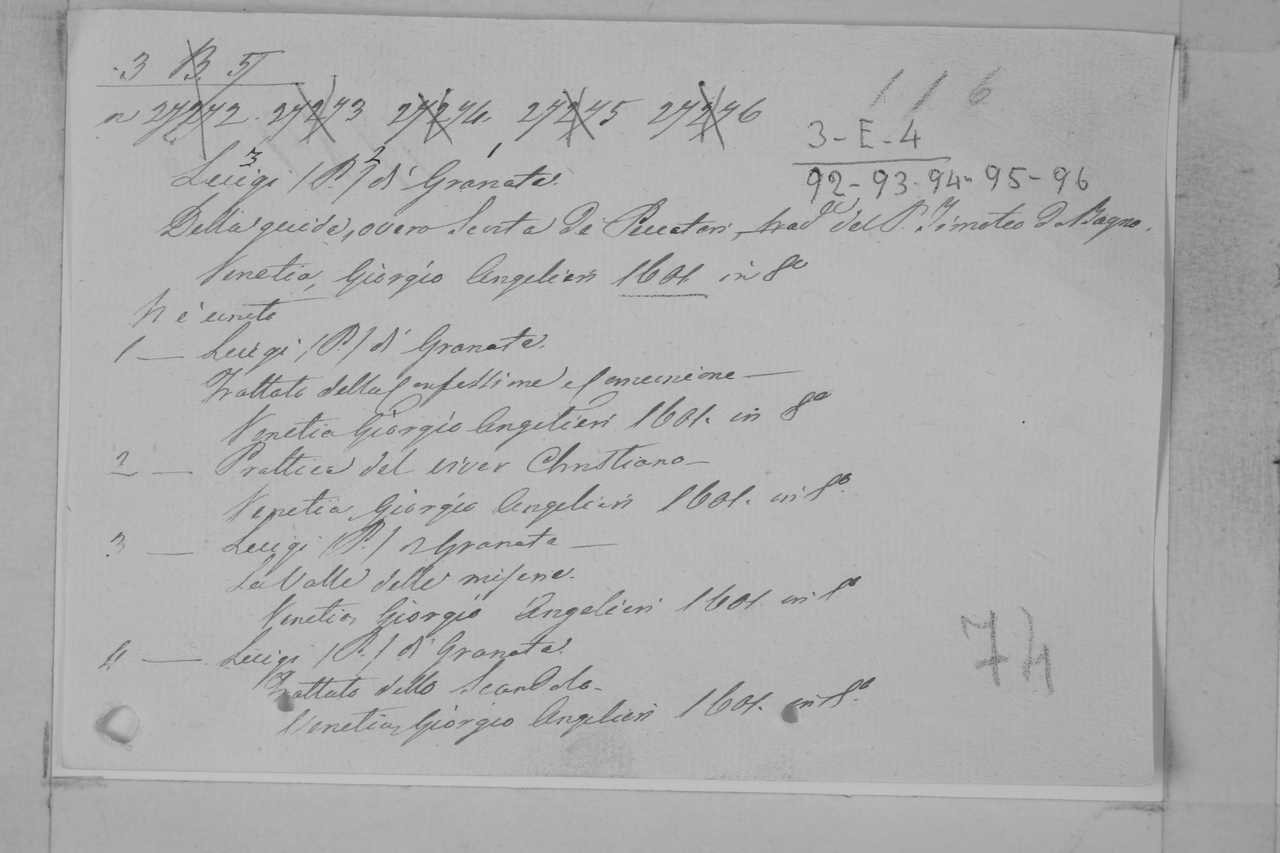 3 B. 5
n 27272. 27273 27274. 27275 27276
116
3-E-4
92-93-94-95-96
3 2 1
Luigi (P.) di Granata.
Della guida, overo Scorta de Peccatori, trad. del P. Timoteo da Bagno.
Venetia, Giorgio Angelieri 1601. in 8º
N è unito
1 — Luigi (P.) di Granata.
Trattato della Confessione e Comunione —
Venetia Giorgio Angelieri 1601. in 8º
2 — Prattica del viver Christiano —
Venetia, Giorgio Angelieri 1601. in 8º.
3 — Luigi (P.) di Granata —
La Valle delle miserie.
Venetia, Giorgio Angelieri 1601. in 8º
4 — Luigi (P.) di Granata.
Trattato dello Scandolo —
Venetia, Giorgio Angelieri 1601. in 8º.
74